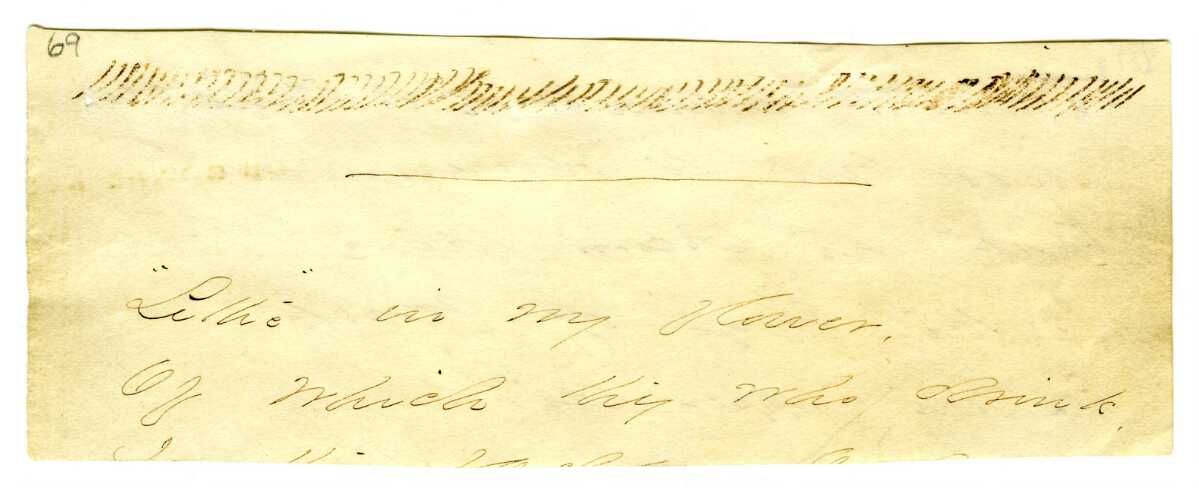 69
"Lethe" in my flower,
Of which they who drink,